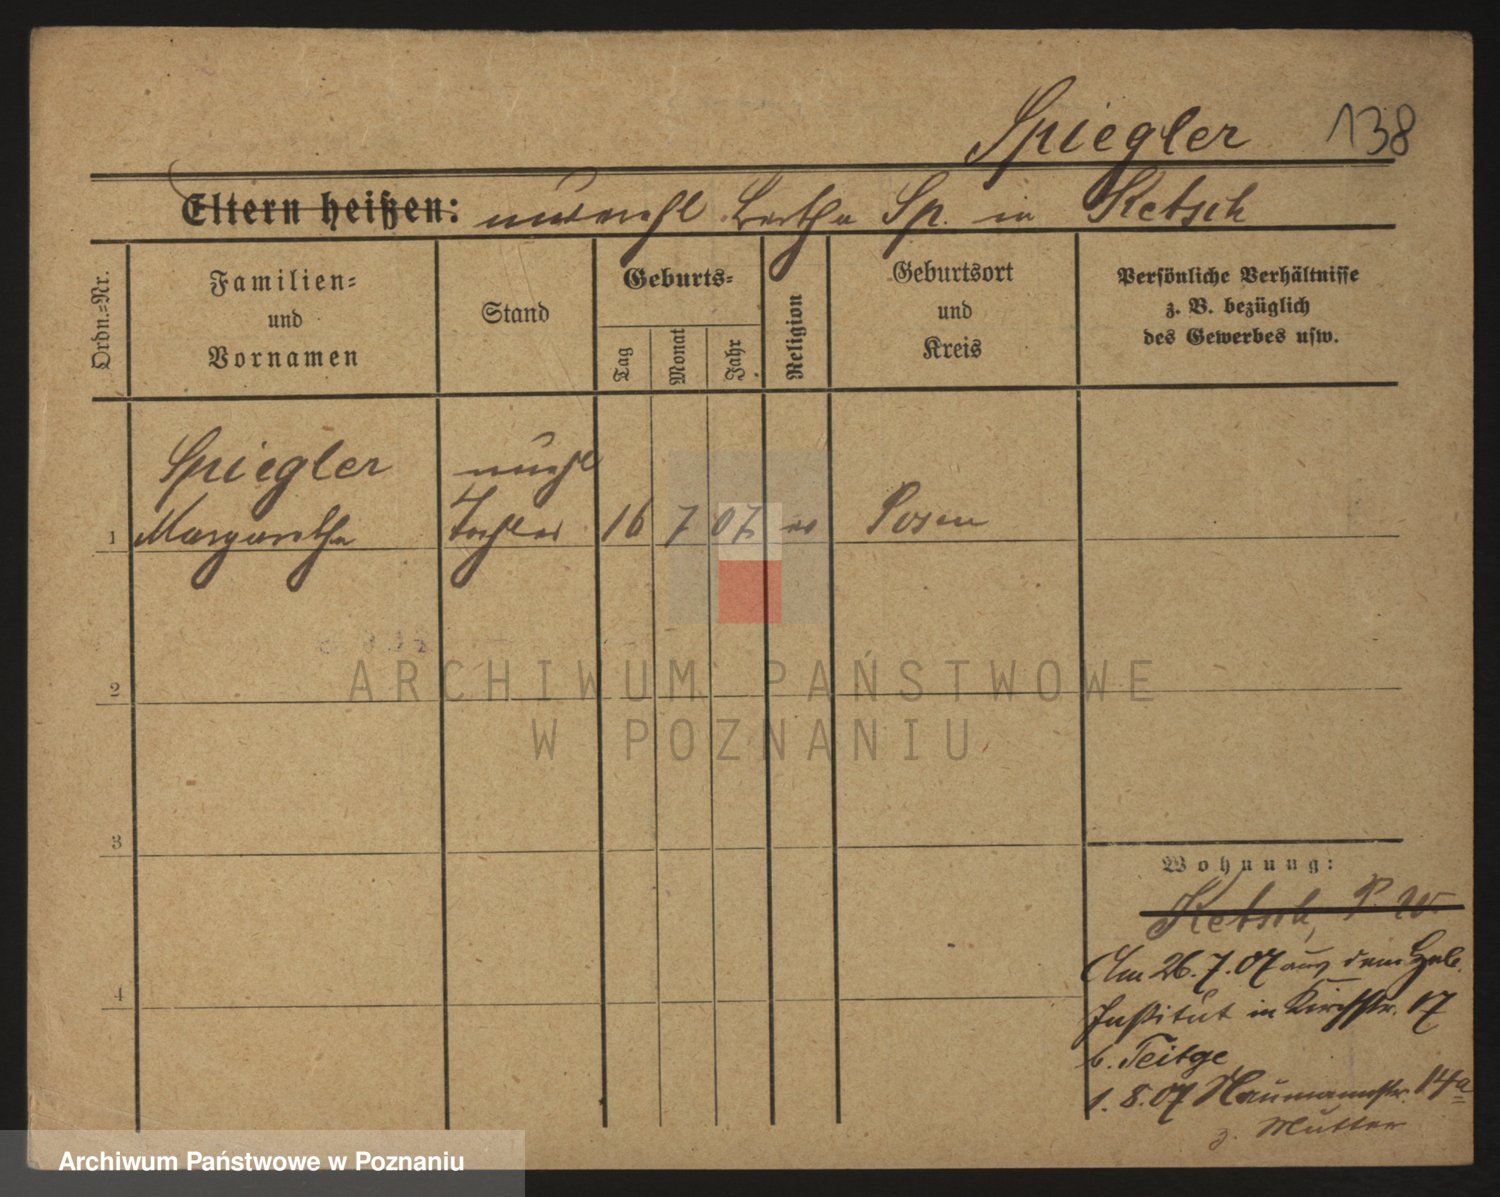 Spiegler 138
Eltern heißen: unverehl. Bertha Sp. in Ketsch
Ordn.=Nr.
Familien=
und
Vornamen
Stand
Geburts=
Tag
Monat
Jahr
Religion
Geburtsort
und
Kreis
Persönliche Verhältnisse
z. B. bezüglich
des Gewerbes usw.
Spiegler unehl
1 Margarethe Tochter 16 7 07. ev Posen
2
ARCHIWUM PAŃSTWOWE
W POZNANIU
3
Wohnung:
Ketsch, P. W.
4
Am 26.7.07 aus dem Heb.
Institut in Kirchstr. 17
b. Teitge
1.8.07 Naumannstr. 14a
z. Mutter
Archiwum Państwowe w Poznaniu